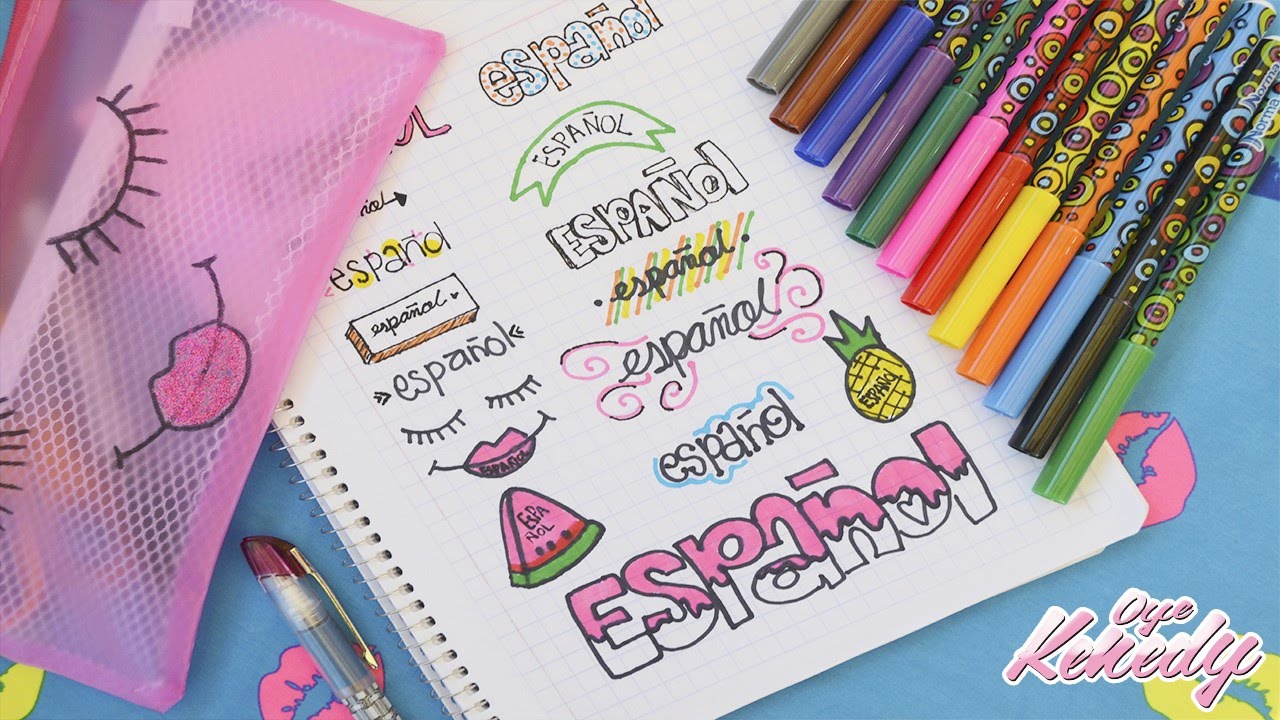 español
ESPAÑOL
ESPAÑOl
español
español
español
ESPAÑOL
español
ESPAÑOl
español
español
español
ESPAÑOL
ESPA
ÑOL
Norma
Norma
Oye
Kehedy